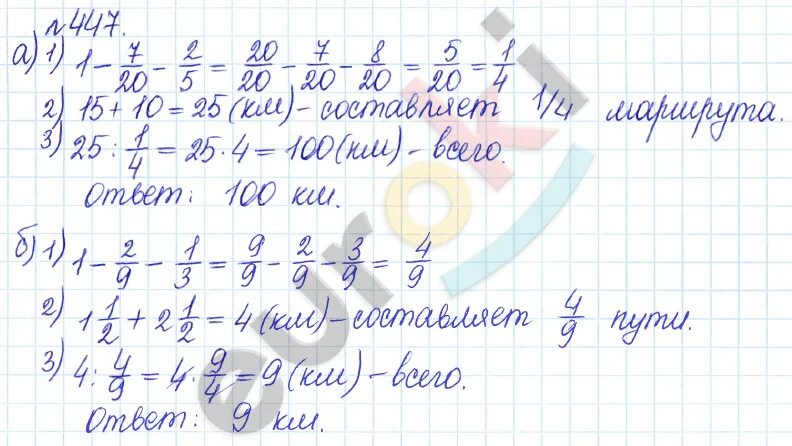 №447.
а) 1) 1 - 7/20 - 2/5 = 20/20 - 7/20 - 8/20 = 5/20 = 1/4
2) 15 + 10 = 25 (км) - составляет 1/4 маршрута.
3) 25 : 1/4 = 25 · 4 = 100 (км) - всего.
Ответ: 100 км.
б) 1) 1 - 2/9 - 1/3 = 9/9 - 2/9 - 3/9 = 4/9
2) 1 1/2 + 2 1/2 = 4 (км) - составляет 4/9 пути.
3) 4 : 4/9 = 4 · 9/4 = 9 (км) - всего.
Ответ: 9 км.
euroki